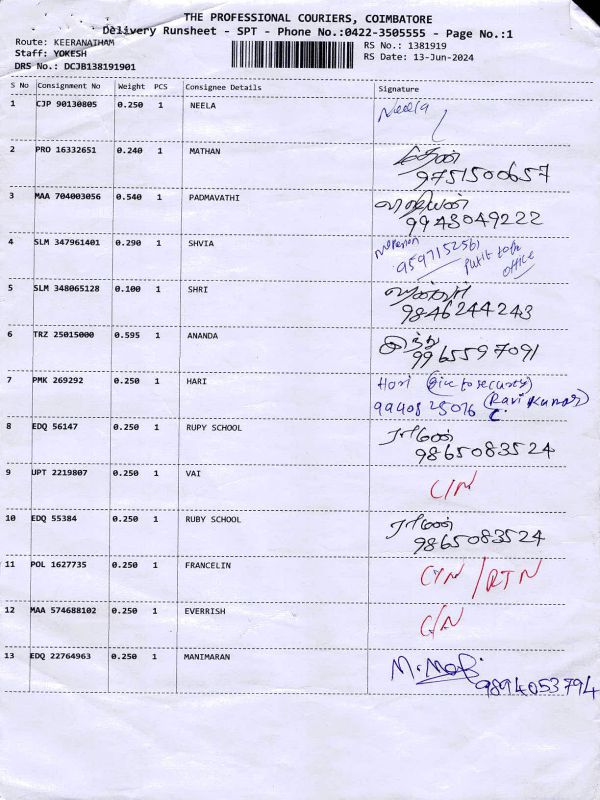 THE PROFESSIONAL COURIERS, COIMBATORE
Delivery Runsheet - SPT - Phone No.:0422-3505555 - Page No.:1
Route: KEERANATHAM
RS No.: 1381919
Staff: YOKESH
RS Date: 13-Jun-2024
DRS No.: DCJB138191901
S No Consignment No Weight PCS Consignee Details Signature
1 CJP 90130805 0.250 1 NEELA Neela
2 PRO 16332651 0.240 1 MATHAN
9751500657
3 MAA 704003056 0.540 1 PADMAVATHI
9943049222
4 SLM 347961401 0.290 1 SHVIA
9597152561 put it to
office
5 SLM 348065128 0.100 1 SHRI
9846244243
6 TRZ 25015000 0.595 1 ANANDA இந்து
9965597091
7 PMK 269292 0.250 1 HARI Hari (Give to security)
9940825076 (Ravi Kumar)
8 EDQ 56147 0.250 1 RUPY SCHOOL
9865083524
9 UPT 2219807 0.250 1 VAI C/N
10 EDQ 55384 0.250 1 RUBY SCHOOL
9865083524
11 POL 1627735 0.250 1 FRANCELIN C/N / RTN
12 MAA 574688102 0.250 1 EVERRISH C/N
13 EDQ 22764963 0.250 1 MANIMARAN
9894053794